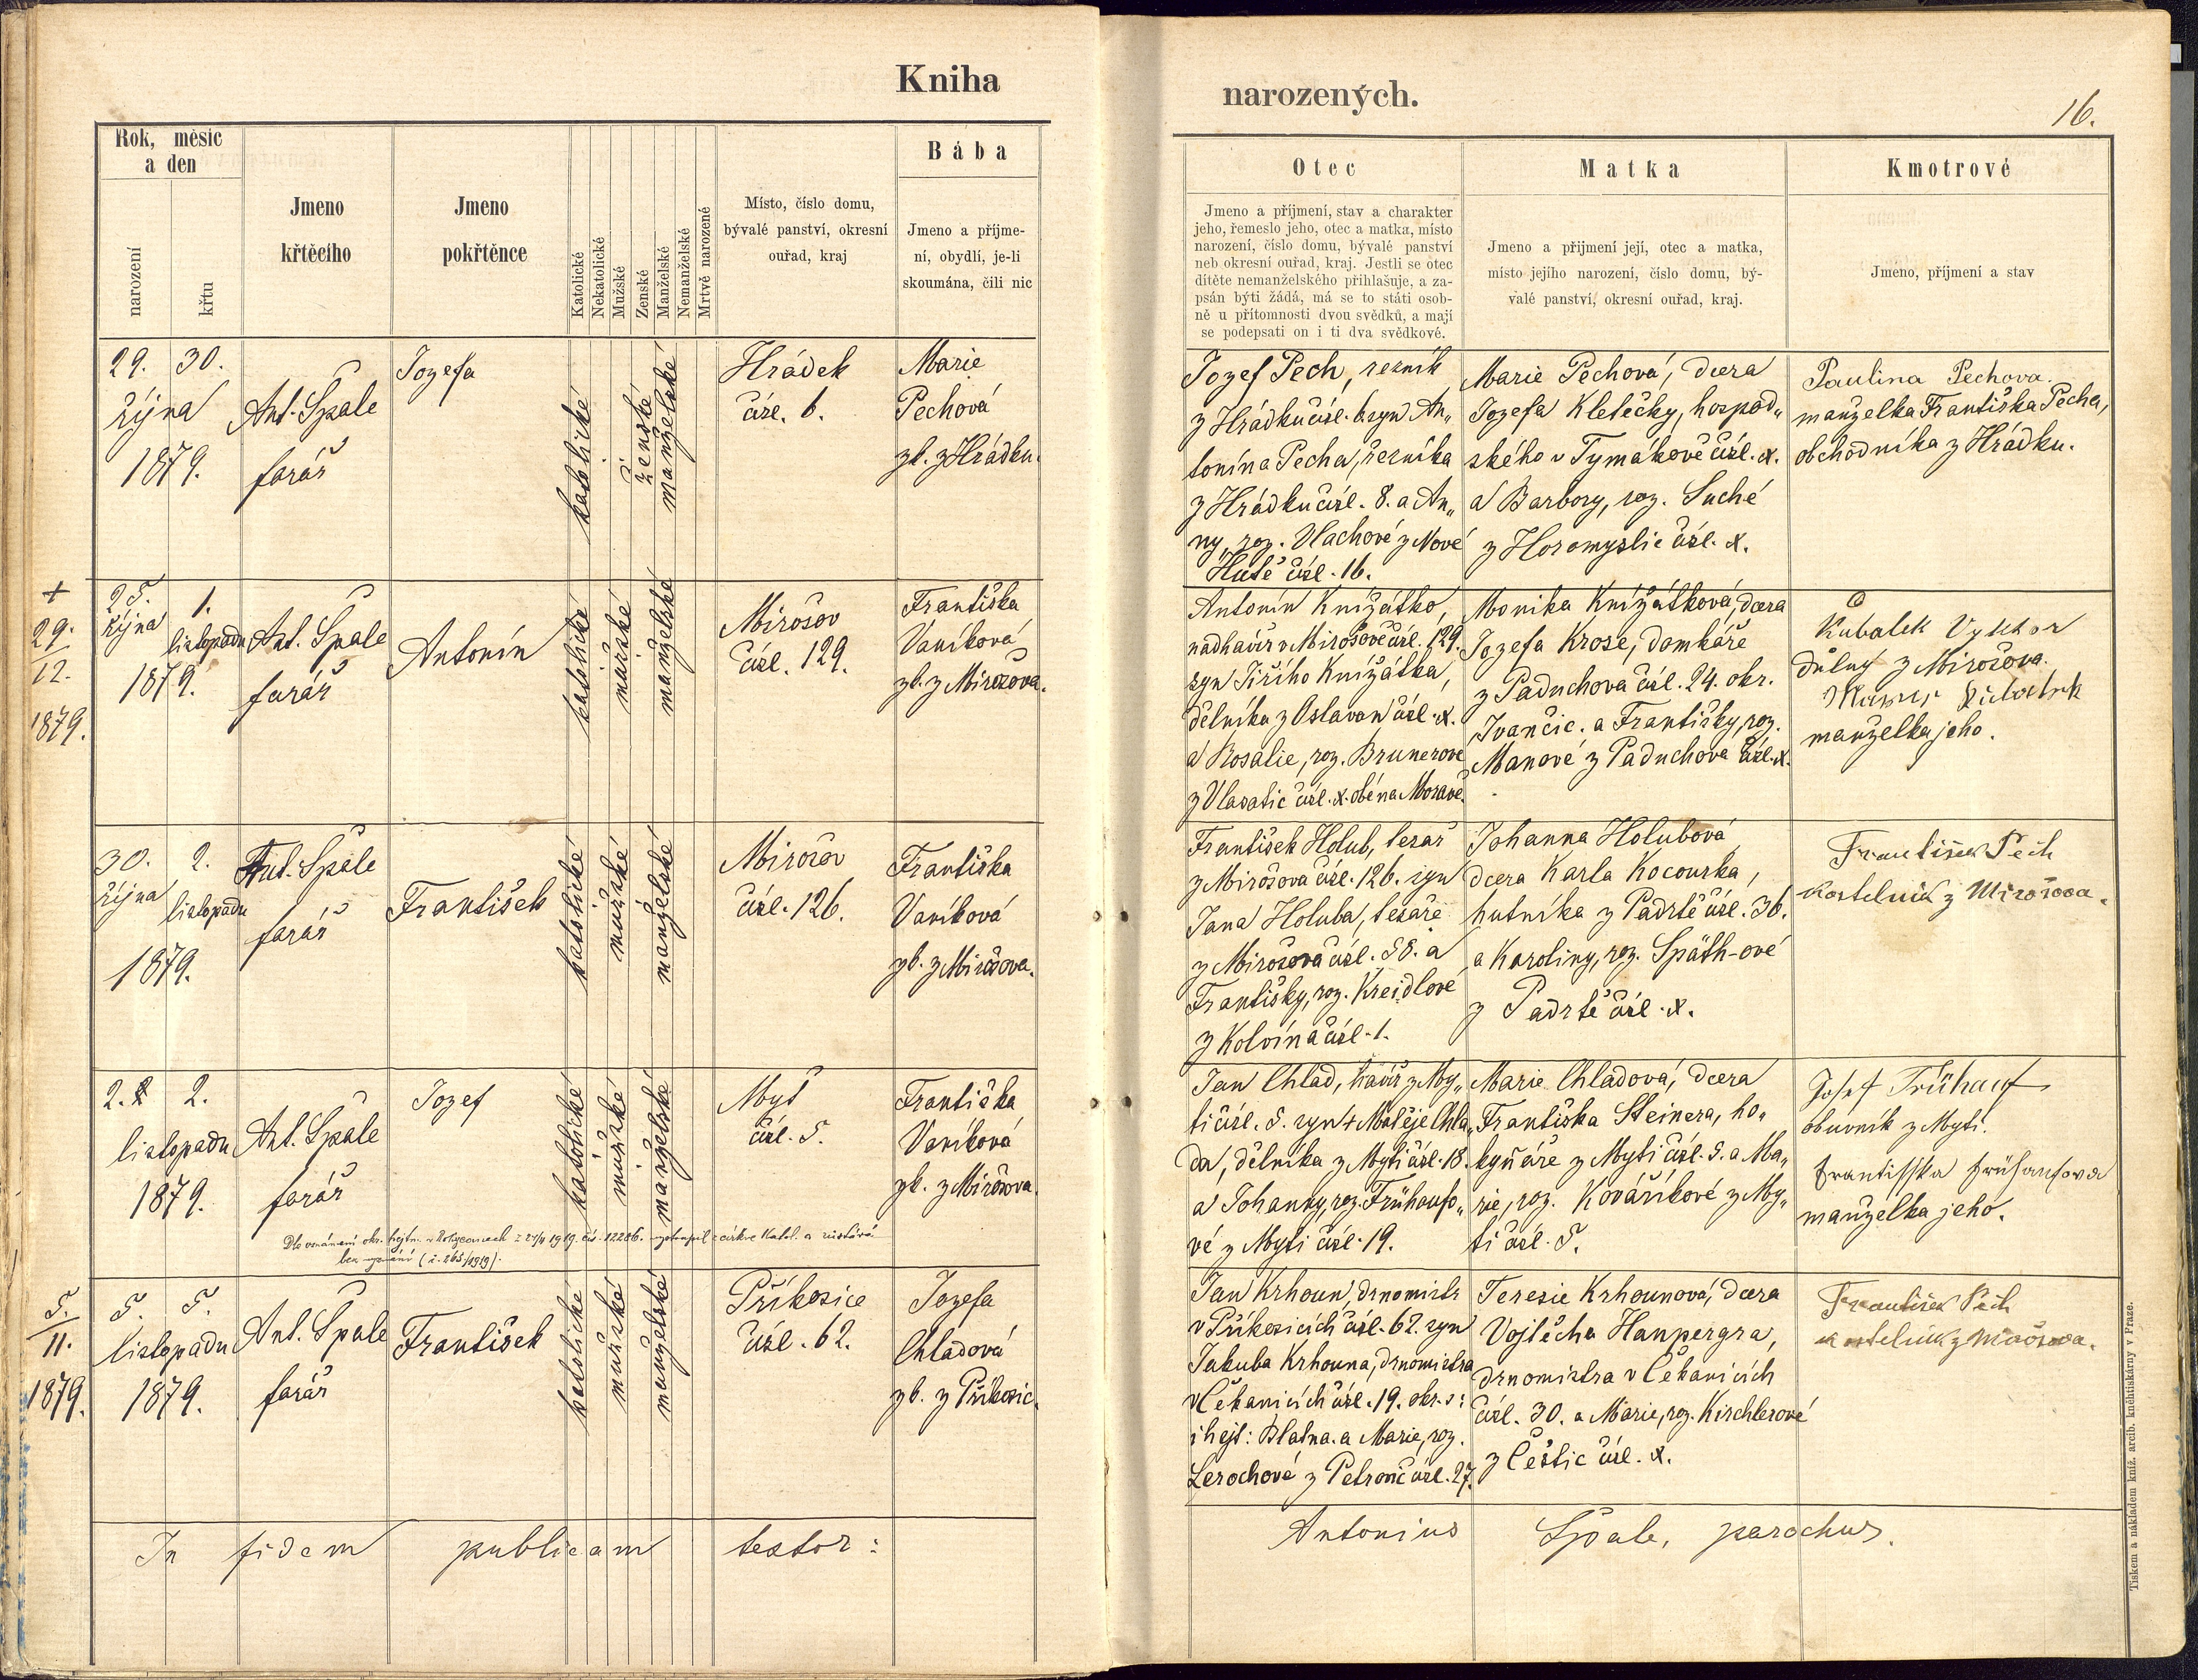 Kniha
narozených.
16.
Rok, měsíc
a den
narození
křtu
Jmeno
křtěcího
Jmeno
pokřtěnce
Katolické
Nekatolické
Mužské
Ženské
Manželské
Nemanželské
Mrtvě narozené
Místo, číslo domu,
bývalé panství, okresní
ouřad, kraj
Bába
Jmeno a příjme-
ní, obydlí, je-li
skoumána, čili nic
Otec
Jmeno a příjmení, stav a charakter
jeho, řemeslo jeho, otec a matka, místo
narození, číslo domu, bývalé panství
neb okresní ouřad, kraj. Jestli se otec
dítěte nemanželského přihlašuje, a za-
psán býti žádá, má se to státi osob-
ně u přítomnosti dvou svědků, a mají
se podepsati on i ti dva svědkové.
Matka
Jmeno a přijmení její, otec a matka,
místo jejího narození, číslo domu, bý-
valé panství, okresní ouřad, kraj.
Kmotrové
Jmeno, příjmení a stav
29. 30.
října
1879.
Ant. Špale
farář
Jozefa
katolické
ženské
manželské
Hrádek
čísl. 6.
Marie
Pechová
zk. z Hrádku.
Jozef Pech, řezník
z Hrádku čísl. 6 syn An„
tonína Pecha, řezníka
z Hrádku čísl. 8. a An„
ny, roz. Vlachové z Nové
Hutě čísl. 16.
Marie Pechová, dcera
Jozefa Kletečky, hospod„
ského v Tymákově čísl. x.
a Barbory, roz. Suché
z Horomyslic čísl. x.
Paulina Pechova.
manželka Františka Pecha,
obchodníka z Hrádku.
+
29.
12.
1879.
25. 1.
října listopadu
1879.
Ant. Špale
farář
Antonín
katolické
mužské
manželské
Mirošov
čísl. 129.
Františka
Vaníková
zk. z Mirošova.
Antonín Knížátko,
nadhavíř v Mirošově čísl. 129.
syn Jiřího Knížátka,
dělníka z Oslavan čísl. x.
a Rosalie, roz. Brunerové
z Vlasatic čísl. x. obé na Moravě.
Monika Knížátková, dcera
Jozefa Krose, domkáře
z Paduchova čísl. 24. okr.
Ivančic. a Františky, roz.
Manové z Paduchova čísl. x.
Kubalek Vyktor
důlný z Mirošova.
manželka jeho.
30. 2.
října listopadu
1879.
Ant. Špale
farář
František
katolické
mužské
manželské
Mirošov
čísl. 126.
Františka
Vaníková
zk. z Mirošova.
František Holub, tesař
z Mirošova čísl. 126. syn
Jana Holuba, tesaře
z Mirošova čísl. 58. a
Františky, roz. Kreidlové
z Kolvína čísl. 1.
Johanna Holubová
dcera Karla Kocourka,
hutníka z Padrtě čísl. 36.
a Karoliny, roz. Späth-ové
z Padrtě čísl. x.
František Pech
kostelník z Mirošova.
2. 2.
listopadu
1879.
Ant. Špale
farář
Jozef
katolické
mužské
manželské
Myť
čísl. 5.
Františka
Vaníková
zk. z Mirošova.
Jan Chlad, havíř z My„
ti čísl. 5. syn + Matěje Chla„
da, dělníka z Myti čísl. 18.
a Johanny, roz. Frühaufo„
vé z Myti čísl. 19.
Marie Chladová, dcera
Františka Steinera, ho„
kynáře z Myti čísl. 5. a Ma„
rie, roz. Kováříkové z My„
ti čísl. 5.
Josef Frühauf
obuvník z Myti.
Frantisska Frühaufova
manželka jeho.
Dle oznámení okr. hejtm. v Rokycanech z 27/11 1919 čís. 12286. vystoupil z církve katol. a zůstává
bez vyznání (č. 265/1919).
5.
11.
1879.
5. 5.
listopadu
1879.
Ant. Špale
farář
František
katolické
mužské
manželské
Příkosice
čísl. 62.
Jozefa
Chladová
zk. z Příkosic.
Jan Krhoun, drnomistr
v Příkosicích čísl. 62. syn
Jakuba Krhouna, drnomistra
v Čekanicích čísl. 19. okr. s:
i hejt: Blatna. a Marie, roz.
Lerochové z Petrovic čísl. 27.
Teresie Krhounová, dcera
Vojtěcha Hanpergra,
drnomistra v Čekanicích
čísl. 30. a Marie, roz. Kirchlerové
z Čestic čísl. x.
František Pech
kostelník z Mirošova.
In fidem publicam testor:
Antonius Špale, parochus.
Tiskem a nákladem kníž. arcib. kněhtiskárny v Praze.